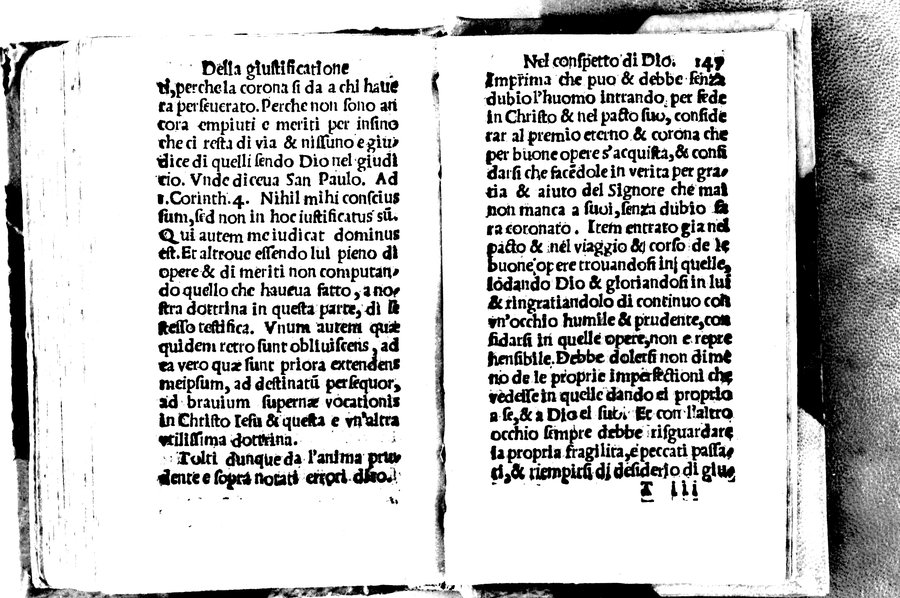 Della giustificatione
ti, perche la corona si da a chi haue
ra perseuerato. Perche non sono an
cora empiuti e meriti per insino
che ci resta di via & nissuno e giu-
dice di quelli sendo Dio nel giudi
cio. Vnde diceua San Paulo. Ad
1. Corinth. 4. Nihil mihi conscius
sum, sed non in hoc iustificatus sū.
Qui autem me iudicat dominus
est. Et altroue essendo lui pieno di
opere & di meriti non computan-
do quello che haueua fatto, a no-
stra dottrina in questa parte, di se
stesso testifica. Vnum autem quæ
quidem retro sunt obliuiscens, ad
ea vero quæ sunt priora extendens
meipsum, ad destinatū persequor,
ad brauium supernæ vocationis
in Christo Iesu & questa e vn'altra
vtilissima dottrina.
Tolti dunque da l'anima pru-
dente e sopra notati errori dico.
Nel conspetto di Dio. 147
Imprima che puo & debbe senza
dubio l'huomo intrando per fede
in Christo & nel pacto suo, confide
rar al premio eterno & corona che
per buone opere s'acquista, & confi
darsi che facēdole in verita per gra-
tia & aiuto del Signore che mai
non manca a suoi, senza dubio sa
ra coronato. Item entrato gia nel
pacto & nel viaggio & corso de le
buone opere trouandosi in quelle,
lodando Dio & gloriandosi in lui
& ringratiandolo di continuo con
vn'occhio humile & prudente, con
fidarsi in quelle opere, non e repre
hensibile. Debbe dolersi non dime
no de le proprie imperfectioni che
vedesse in quelle dando el proprio
a se, & a Dio el suo. Et con l'altro
occhio sempre debbe risguardare
la propria fragilita, e peccati passa-
ti, & riempirsi di desiderio di giu-
T iii